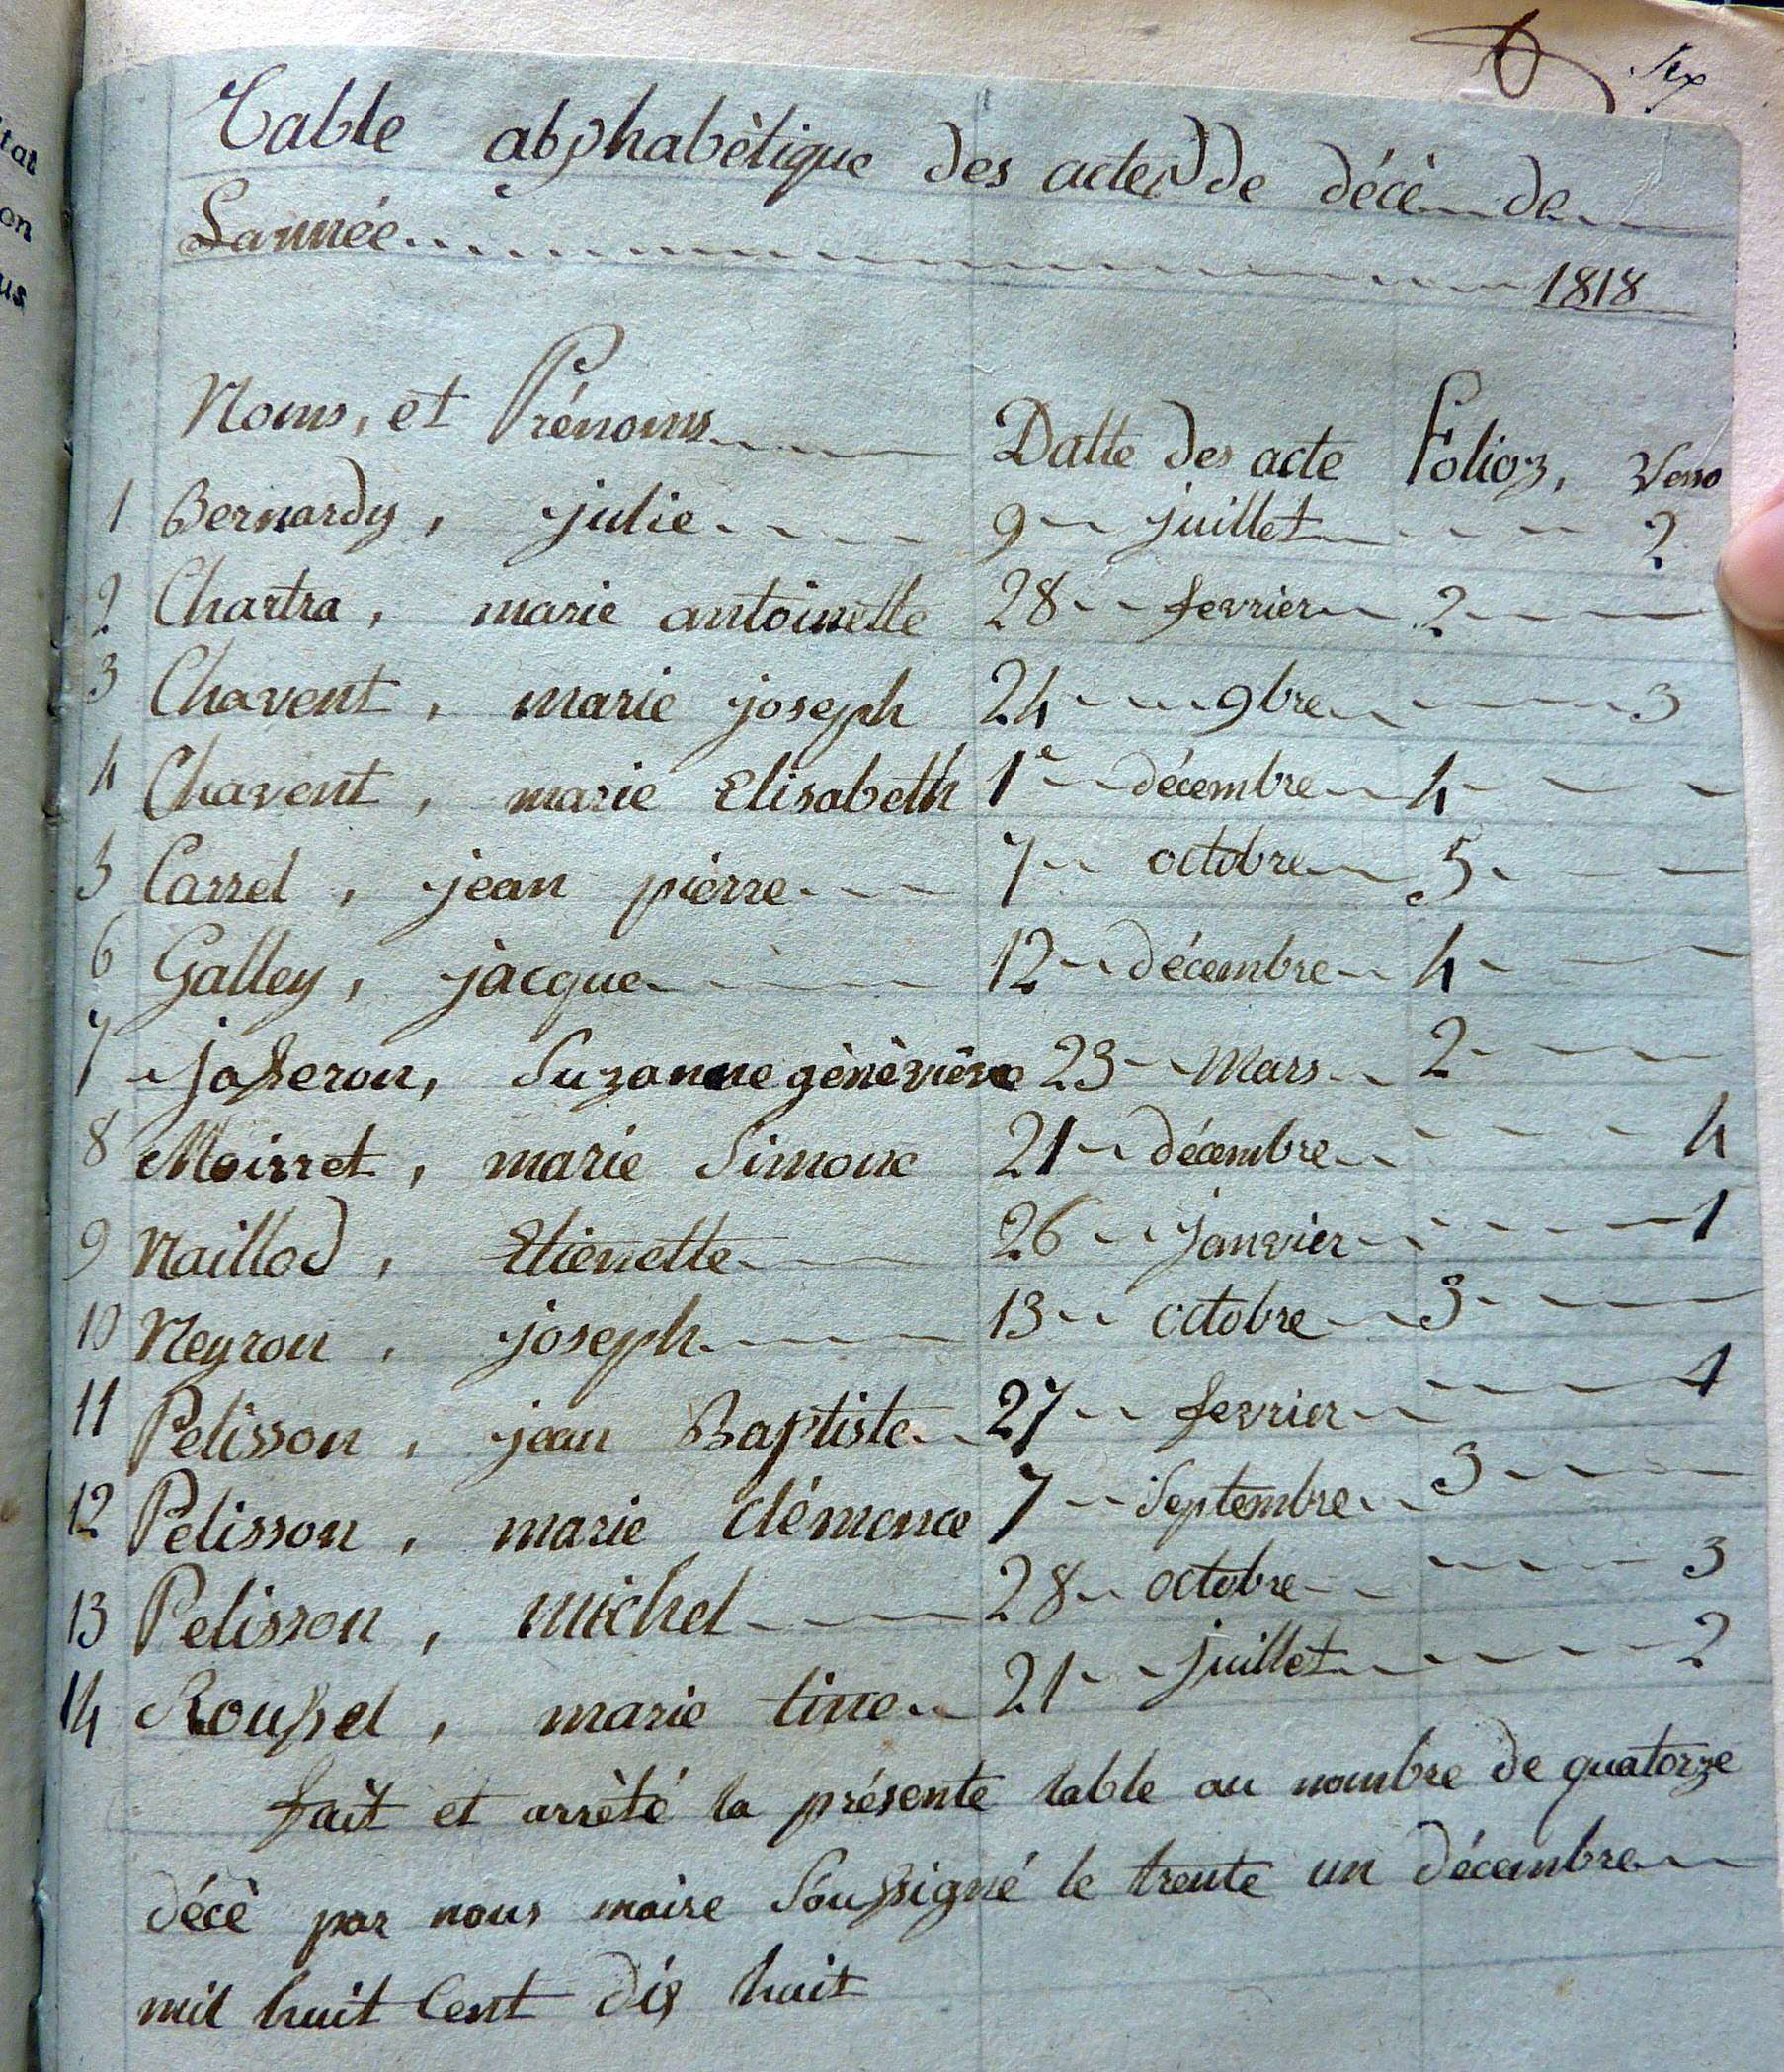 tat
on
us
Six
Table abphabètique des actes de décè de
Lannée 1818
Noms, et Prénoms Datte des acte Folios, Verso
1 Bernardy, julie 9 juillet 2
2 Chartra, marie antoinette 28 fevrier 2
3 Chavent, marie joseph 24 9bre 3
4 Chavent, marie Elisabeth 1e décembre 4
5 Carrel, jean pierre 7 octobre 5
6 Galley, jacque 12 décembre 4
7 josseron, Suzanne gènèviève 23 Mars 2
8 Moirret, marie Simone 21 décembre 4
9 Naillod, Etienette 26 janvier 1
10 Neyron, joseph 13 octobre 3
11 Pelisson, jean Baptiste 27 fevrier 1
12 Pelisson, marie Clémence 7 Septembre 3
13 Pelisson, michel 28 octobre 3
14 Roussel, marie tinne 21 juillet 2
fait et arrèté la présente table au nombre de quatorze
décè par nous maire Soussigné le trente un décembre
mil huit Cent dix huit